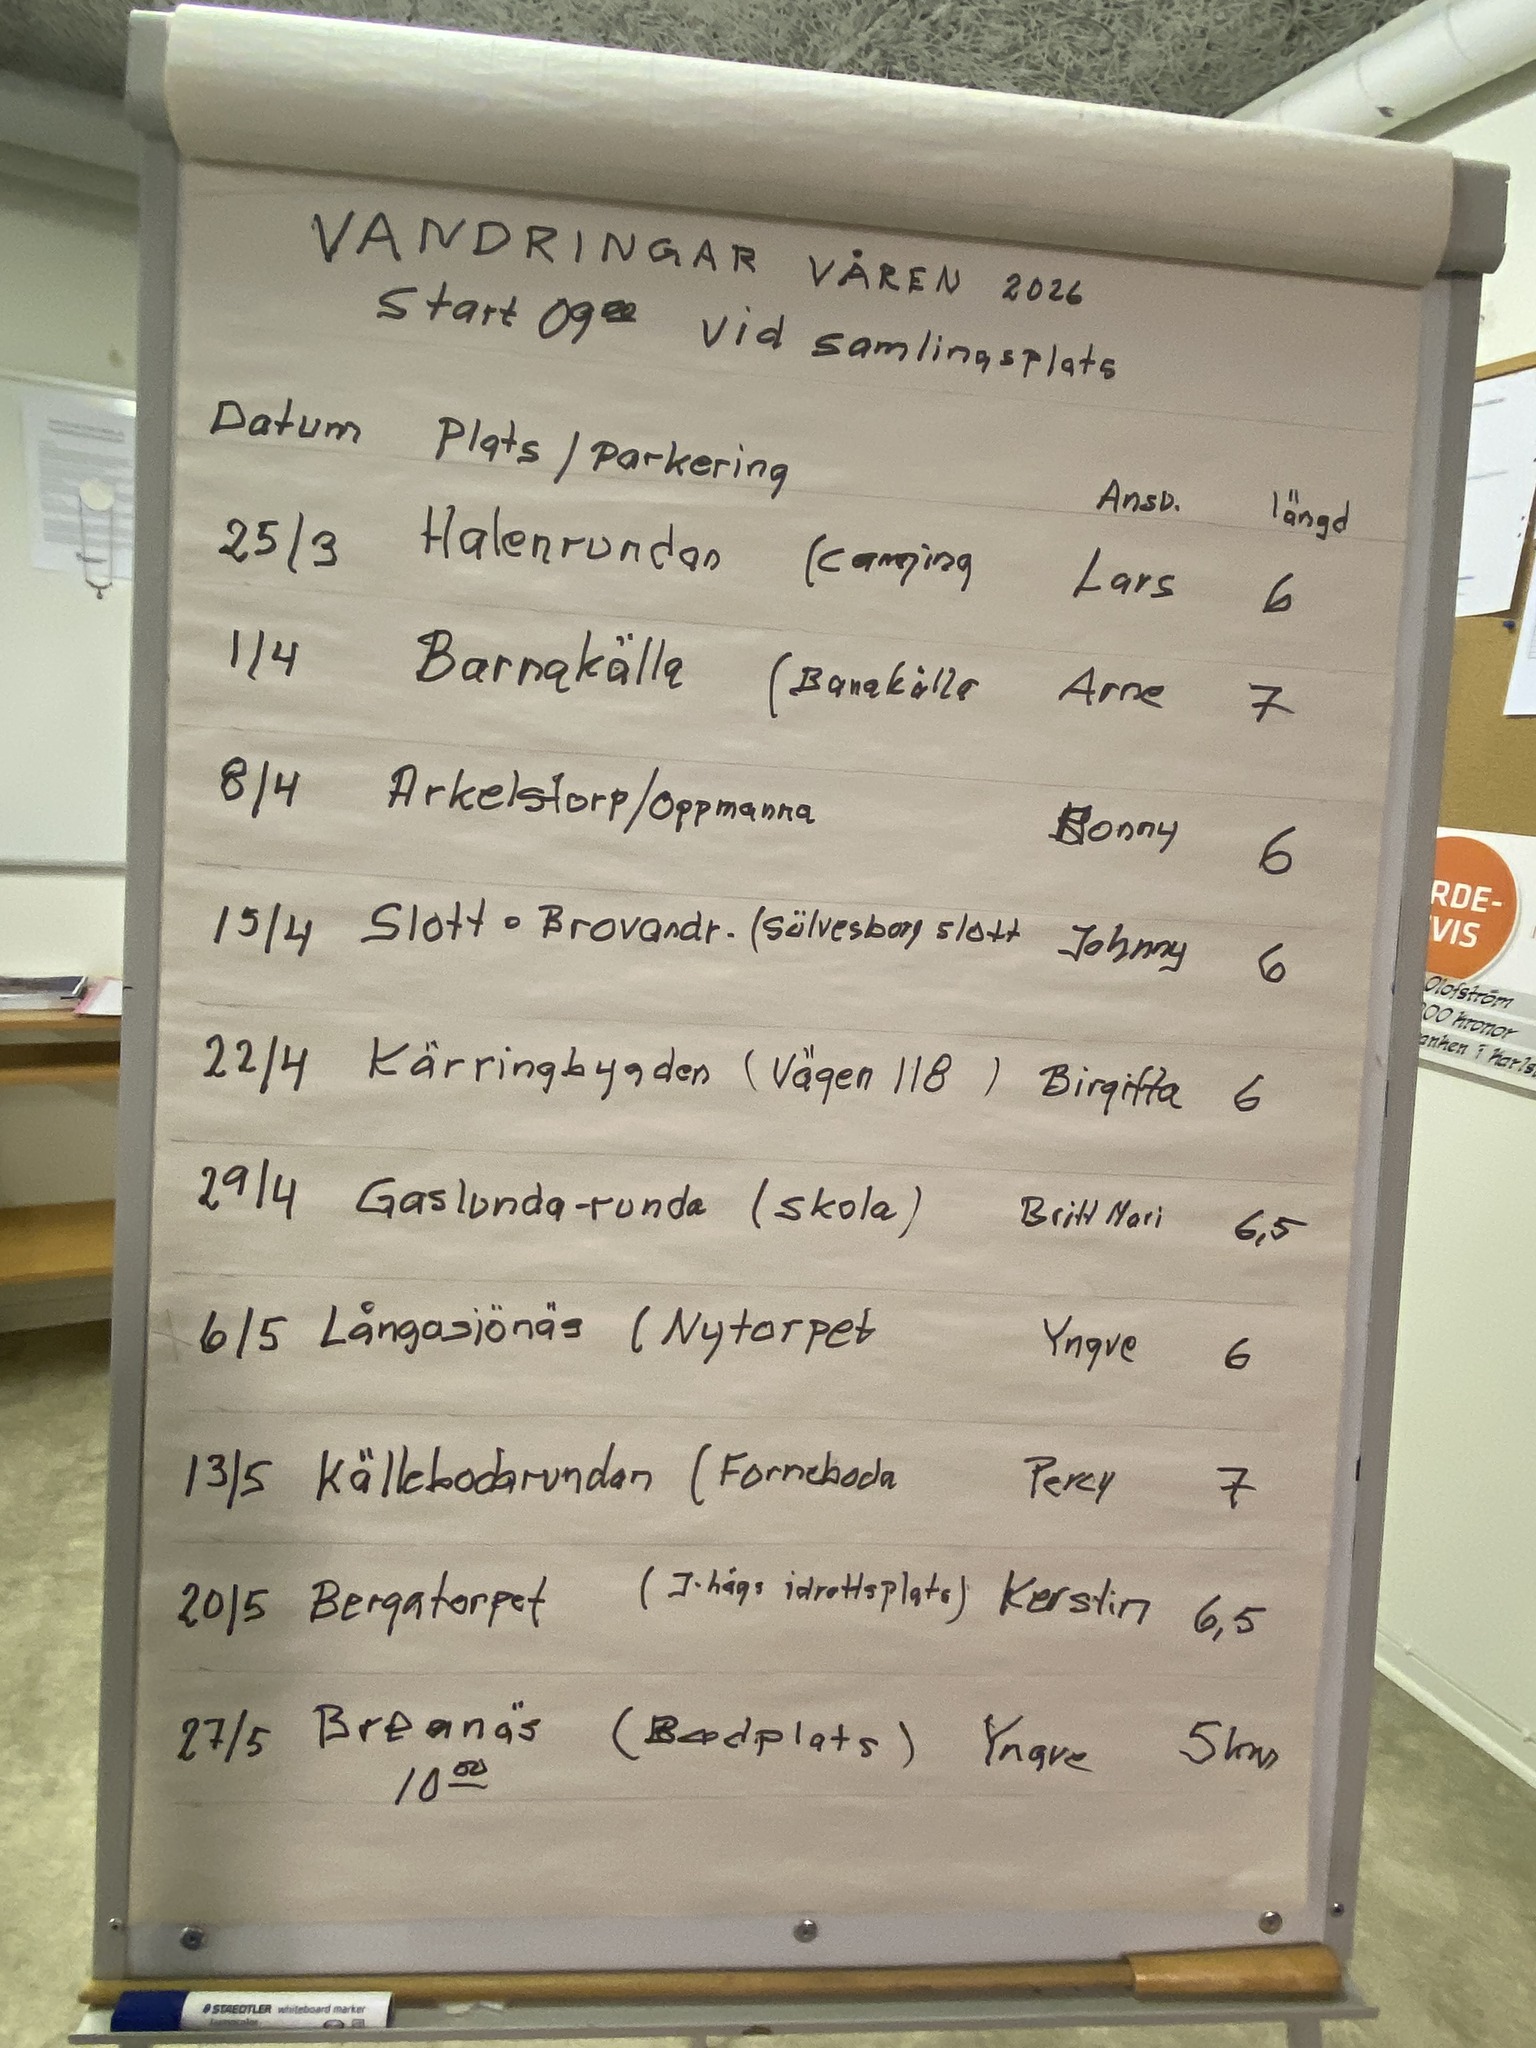 VANDRINGAR VÅREN 2026
Start 09⁰⁰ vid samlingsplats
Datum Plats / Parkering Ansv. längd
25/3 Halenrundan (Camping Lars 6
1/4 Barnakälla (Banakälla Arne 7
8/4 Arkelstorp/Oppmanna Ronny 6
15/4 Slott o Brovandr. (Sölvesborg slott Johnny 6
22/4 Kärringbygden (Vägen 118) Birgitta 6
29/4 Gaslunda-runda (skola) Britt Mari 6,5
6/5 Långasjönäs (Nytorpet Yngve 6
13/5 Källebodarundan (Farneboda Percy 7
20/5 Bergatorpet (J-hags idrottsplats) Kerstin 6,5
27/5 Breanäs (Badplats) Yngve 5 km
10⁰⁰
RDE-
VIS
Olofström
00 kronor
anken i Karls
STAEDTLER whiteboard marker
Lumocolor